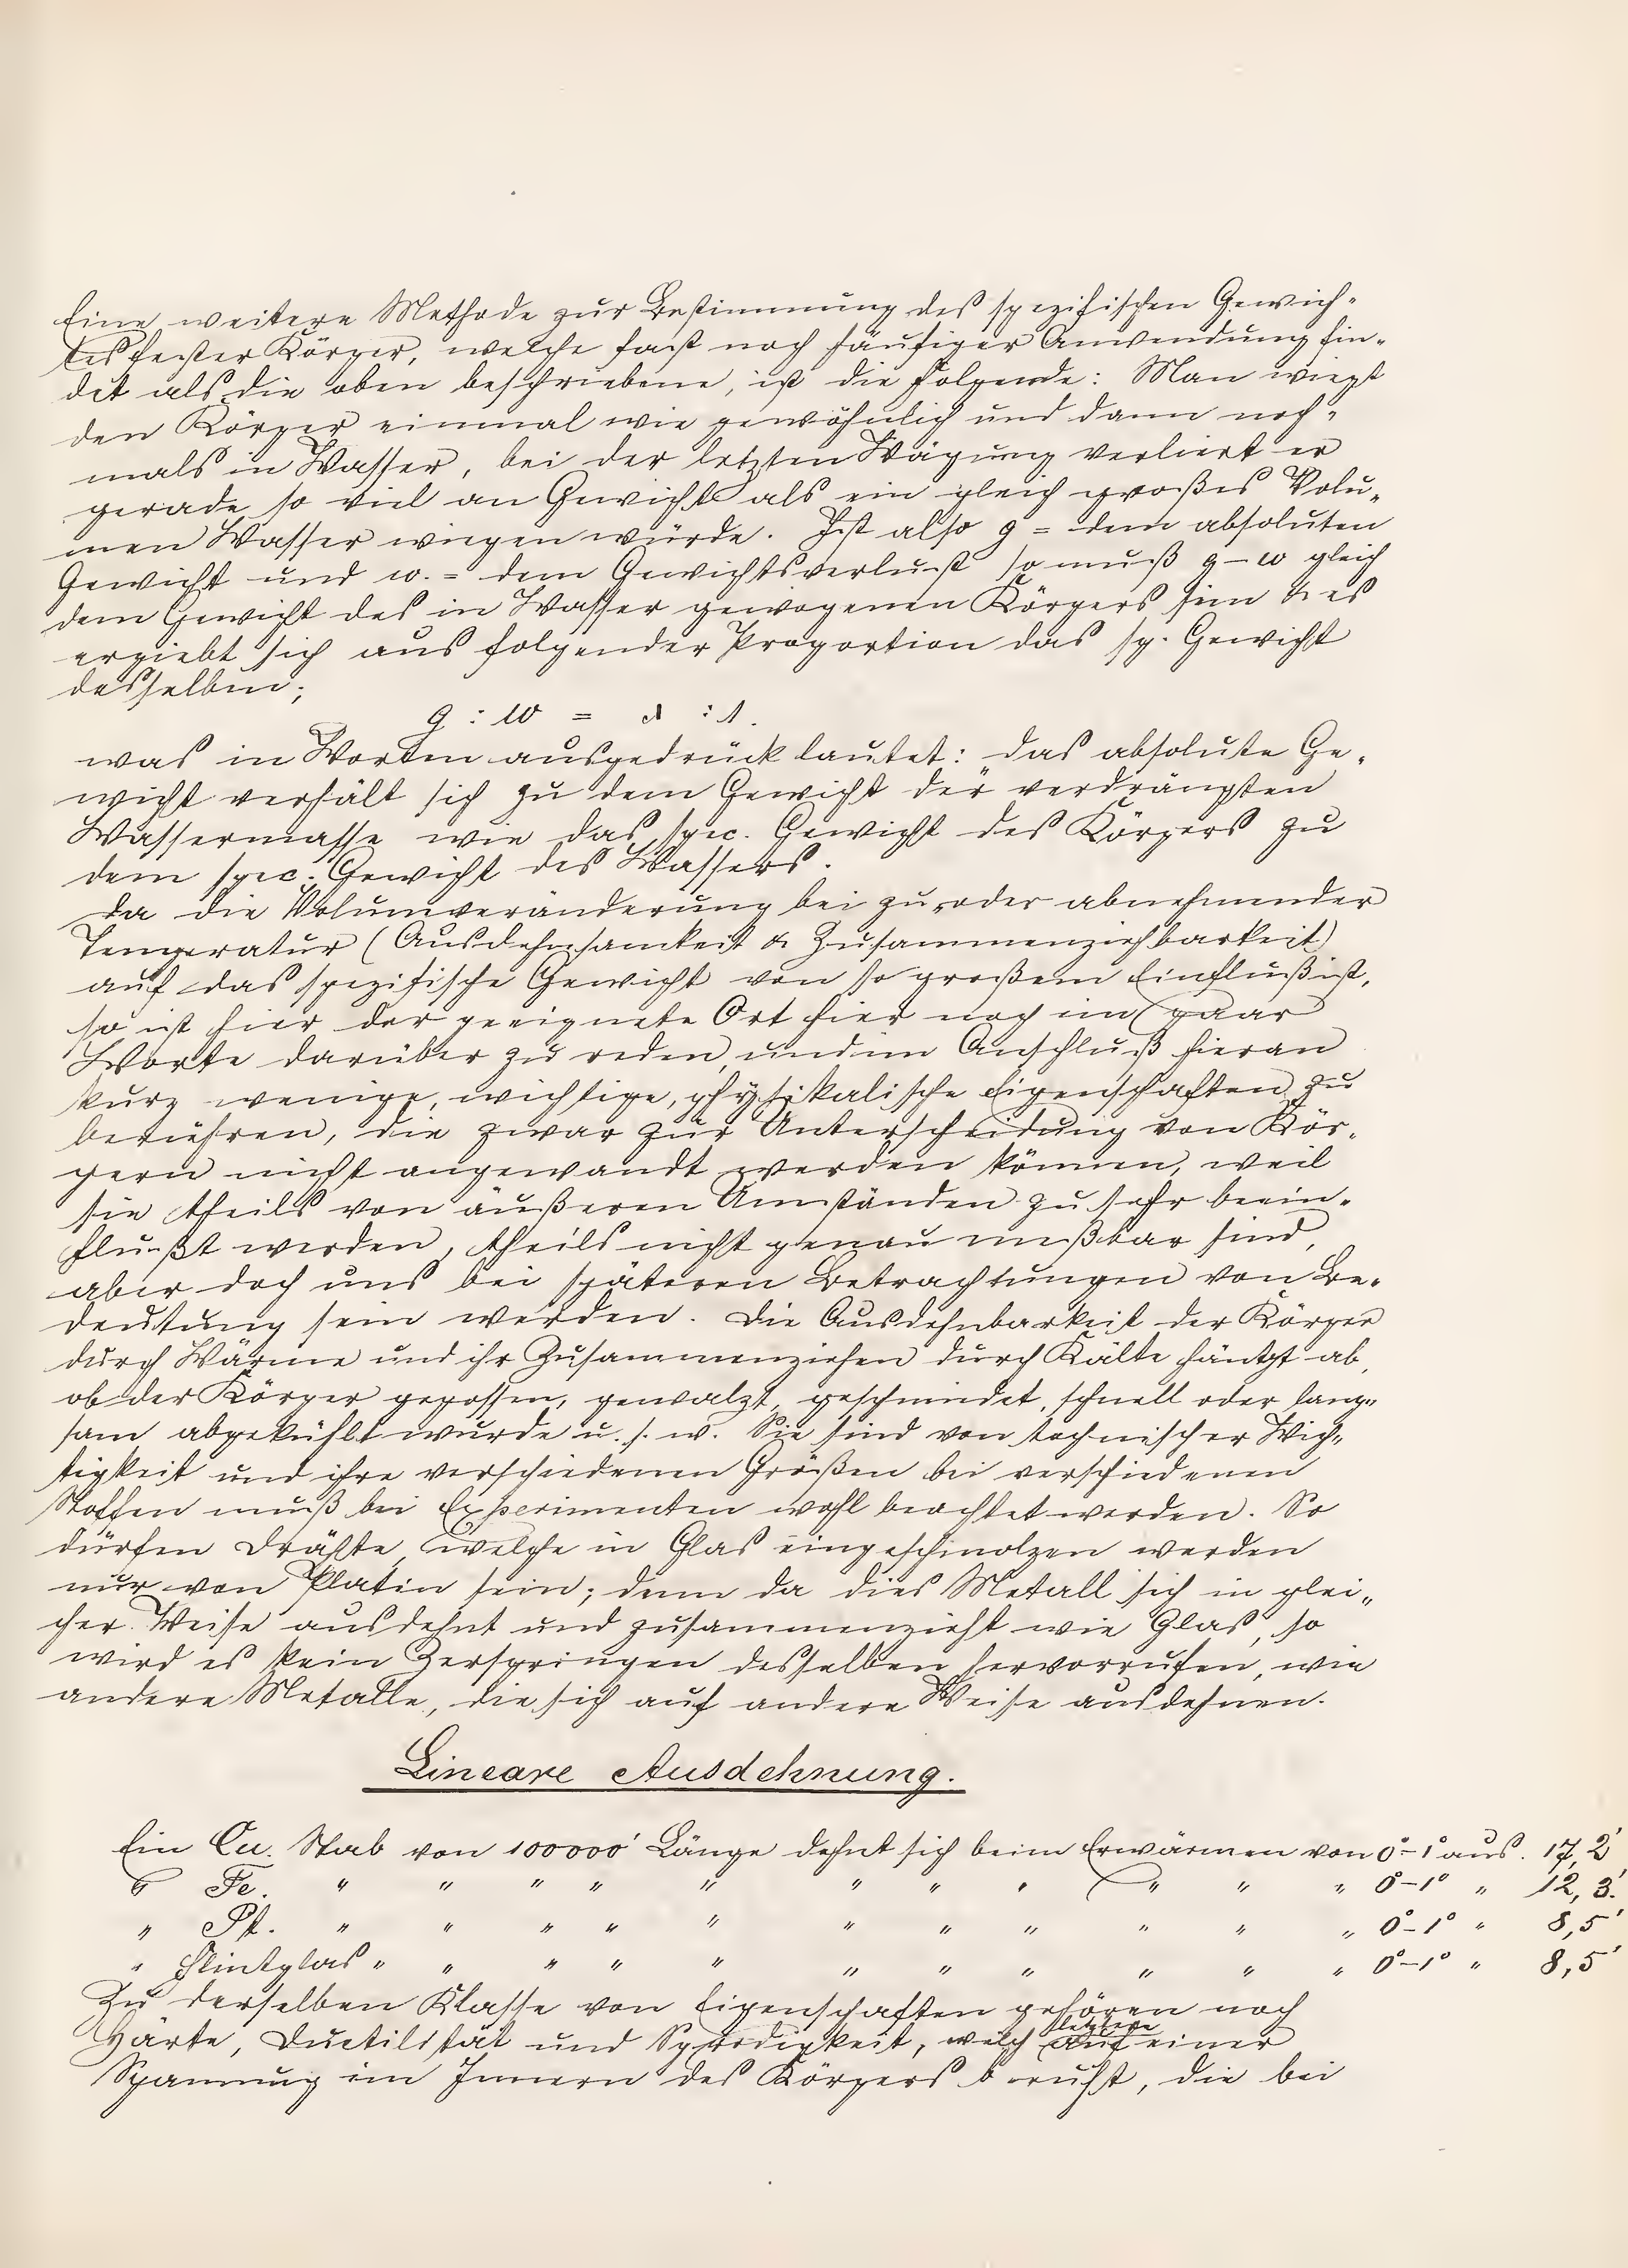 Eine weitere Methode zur Bestimmung des spezifischen Gewich-
tes fester Körper, welche fast noch häufiger Anwendung fin-
det als die oben beschriebene, ist die folgende: Man wiegt
den Körper einmal wie gewöhnlich und dann noch-
mals in Wasser, bei der letzten Wägung verliert er
gerade so viel an Gewicht als ein gleich großes Volu-
men Wasser wiegen würde. Ist also g = dem absoluten
Gewicht und w. = dem Gewichtsverlust so muß g – w gleich
dem Gewicht des in Wasser gewogenen Körpers sein & es
ergiebt sich aus folgender Proportion das sp. Gewicht
desselben;
g : w = s : 1.
was in Worten ausgedrück lautet: das absolute Ge-
wicht verhält sich zu dem Gewicht der verdrängten
Wassermasse wie das spec. Gewicht des Körpers zu
dem spec. Gewicht des Wassers.
Da die Volumveränderung bei zu- oder abnehmender
Temperatur (Ausdehnsamkeit & Zusammenziehbarkeit)
auf das spezifische Gewicht von so großem Einfluß ist,
so ist hier der geeignete Ort hier noch ein paar
Worte darüber zu reden, und im Anschluß hieran
kurz wenige, wichtige, physikalische Eigenschaften zu
berühren, die zwar zur Unterscheidung von Kör-
pern nicht angewandt werden können, weil
sie theils von äußeren Umständen zu sehr beein-
flußt werden, theils nicht genau meßbar sind,
aber doch uns bei späteren Betrachtungen von Be-
deutung sein werden. Die Ausdehnbarkeit der Körper
durch Wärme und ihr Zusammenziehen durch Kälte hängt ab,
ob der Körper gegossen, gewalzt, geschmiedet, schnell oder lang-
sam abgekühlt wurde u. s. w. Sie sind von technischer Wich-
tigkeit und ihre verschiedenen Größen bei verschiedenen
Stoffen muß bei Experimenten wohl beachtet werden. So
dürfen Drähte, welche in Glas eingeschmolzen werden
nur von Platin sein; denn da dies Metall sich in glei-
cher Weise ausdehnt und zusammenzieht wie Glas, so
wird es kein Zerspringen desselben hervorrufen, wie
andere Metalle, die sich auf andere Weise ausdehnen.
Lineare Ausdehnung.
Ein Cu. Stab von 100000' Länge dehnt sich beim Erwärmen von 0°–1° aus. 17,2'
" Fe. " " " " " " " " " " " 0°–1° " 12,3.'
" Pt. " " " " " " " " " " " 0°–1° " 8,5'
" Flintglas " " " " " " " " " " " 0°–1° " 8,5'
Zu derselben Klasse von Eigenschaften gehören noch
Härte, Ductilität und Sprödigkeit, welch letztere auf einer
Spannung im Innern des Körpers beruht, die bei